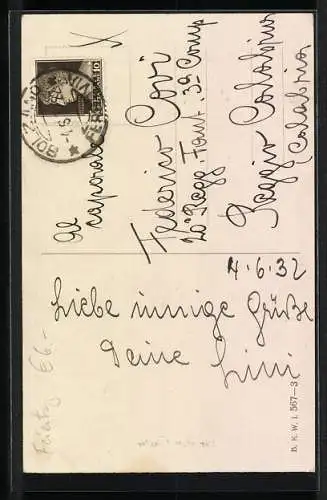 BOLZANO
10
Al
caporale
Federico Covi
20º Regg. Fant. 3ª Comp
Reggio Calabria
(Calabria)
4.6.32
Liebe innige Grüße
Deine Lini
B. K. W. I. 567—3